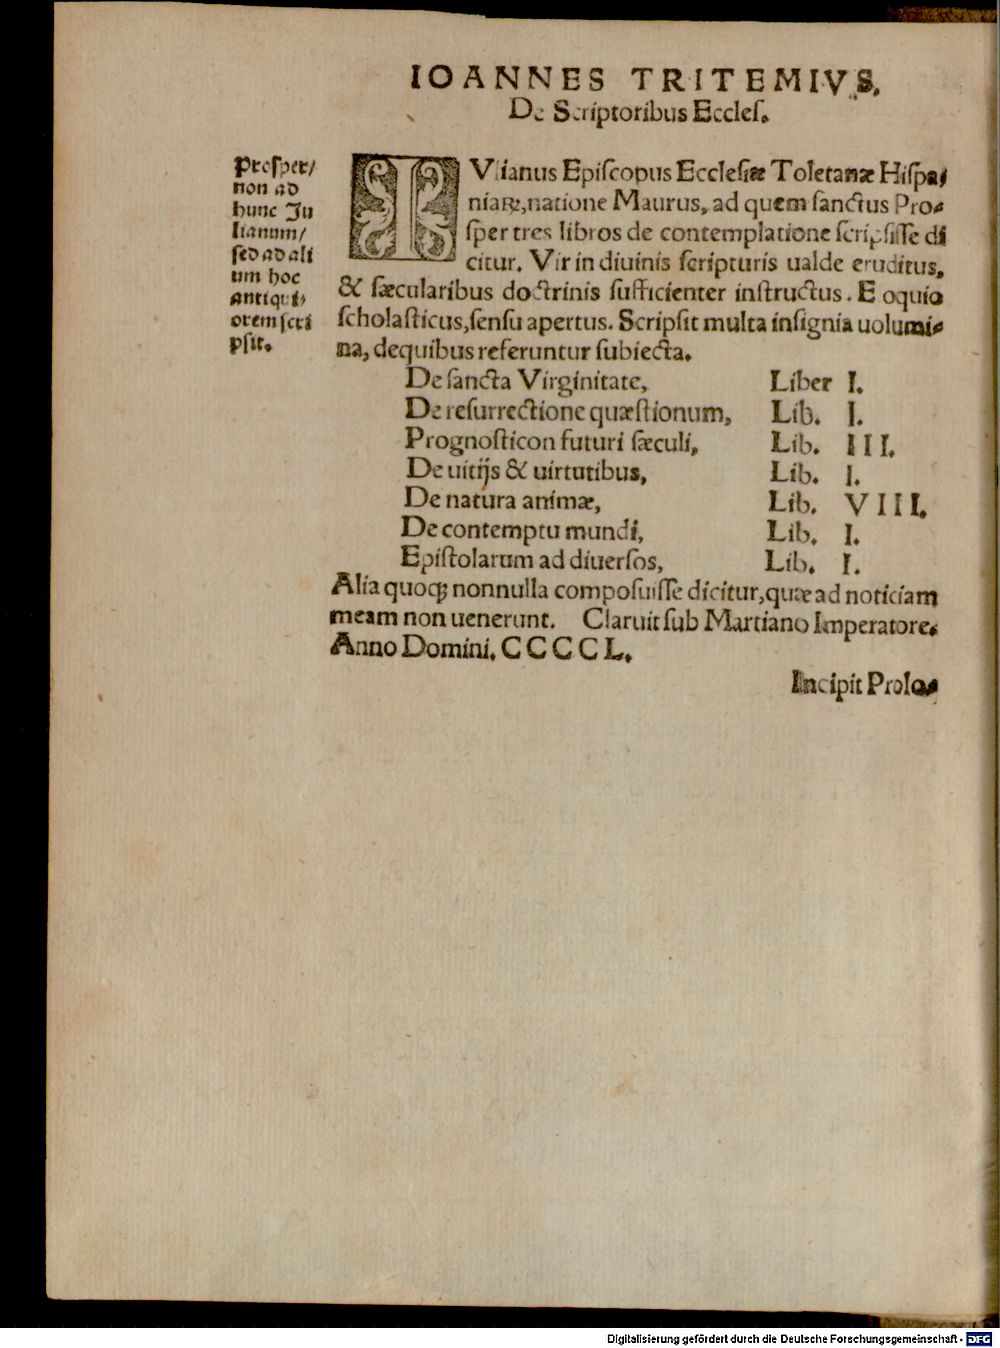 IOANNES TRITEMIVS.
De Scriptoribus Eccleſ.
Proſper/
non ad
hunc Ju
lianum/
ſed ad ali
um hoc
antiqui⸗
orem ſcri
pſit.
IVlianus Epiſcopus Eccleſiæ Toletanæ Hiſpa⸗
niaꝝ, natione Maurus, ad quem ſanctus Pro⸗
ſper tres libros de contemplatione ſcripſiſſe di
citur. Vir in diuinis ſcripturis ualde eruditus,
& ſæcularibus doctrinis ſufficienter inſtructus. E oquio
ſcholaſticus, ſenſu apertus. Scripſit multa inſignia uolumi⸗
na, dequibus referuntur ſubiecta.
De ſancta Virginitate, Liber I.
De reſurrectione quæſtionum, Lib. I.
Prognoſticon futuri ſæculi, Lib. III.
De uitijs & uirtutibus, Lib. I.
De natura animæ, Lib. VIII.
De contemptu mundi, Lib. I.
Epiſtolarum ad diuerſos, Lib. I.
Alia quoq; nonnulla compoſuiſſe dicitur, quæ ad noticiam
meam non uenerunt. Claruit ſub Martiano Imperatore.
Anno Domini. CCCCL.
Incipit Prolo⸗
Digitalisierung gefördert durch die Deutsche Forschungsgemeinschaft - DFG